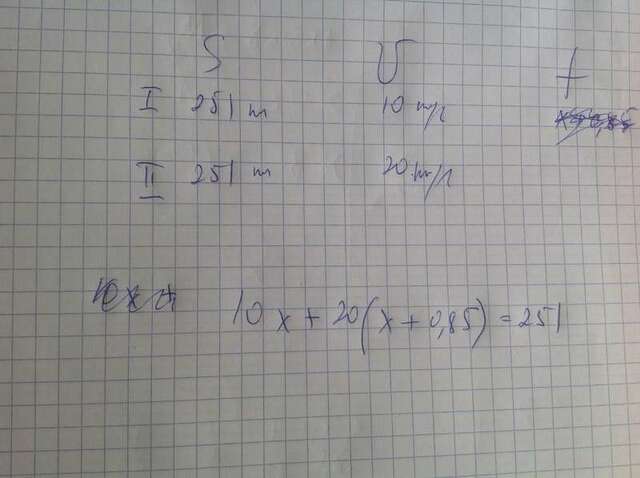 S V t
I 251 m 10 m/c
II 251 m 20 m/c
10x + 20(x + 0,85) = 251